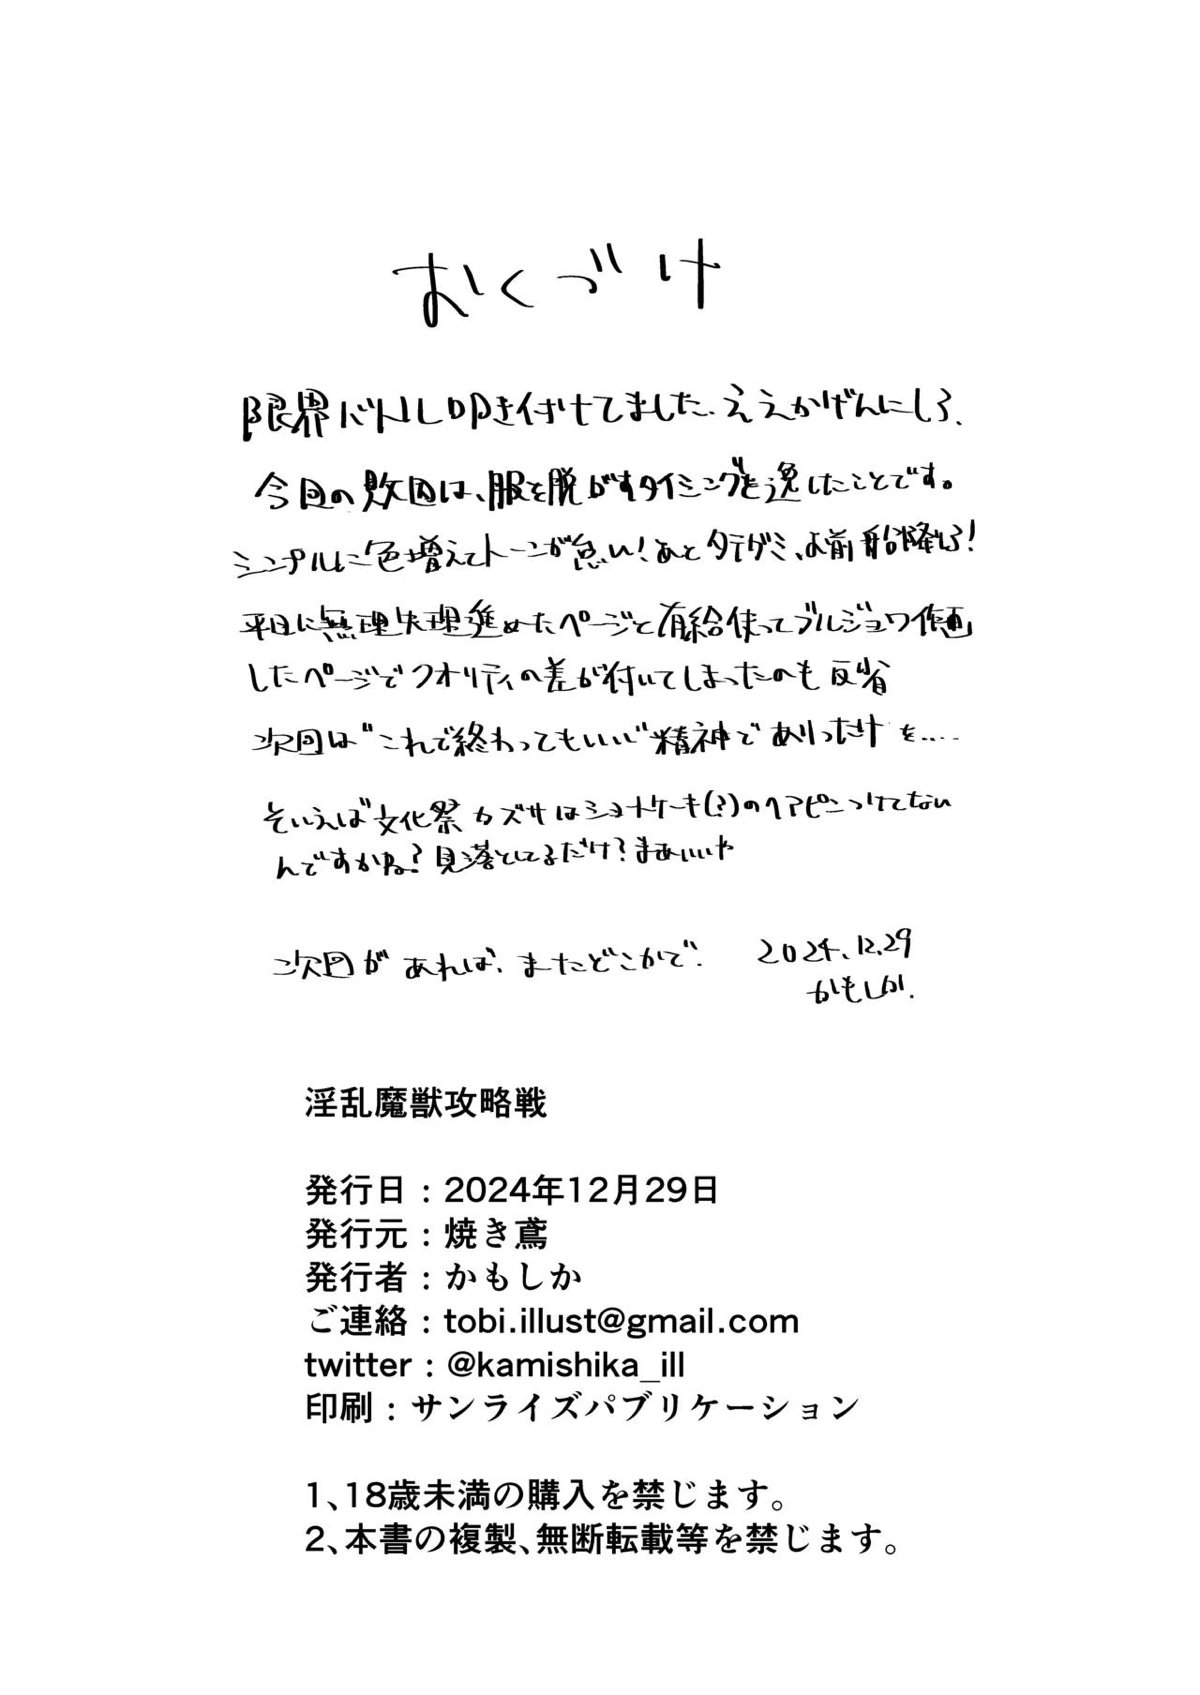 おくづけ
限界バトル叩き付けてました。ええかげんにしろ。
今回の敗因は、服を脱がすタイミングを逸したことです。
シンプルに色増えてトーンが怠い!あとタテグミ、お前船降りろ!
平日に無理矢理進めたページと有給使ってブルジョワ作画
したページでクオリティの差が付いてしまったのも反省
次回は"これで終わってもいい"精神でありったけを……
そういえば文化祭カズサはショートケーキ(?)のヘアピンつけてない
んですかね?見落としてるだけ?まあいいや
次回があれば、またどこかで。 2024.12.29
かもしか.
淫乱魔獣攻略戦
発行日：2024年12月29日
発行元：焼き鳶
発行者：かもしか
ご連絡：tobi.illust@gmail.com
twitter：@kamishika_ill
印刷：サンライズパブリケーション
1、18歳未満の購入を禁じます。
2、本書の複製、無断転載等を禁じます。